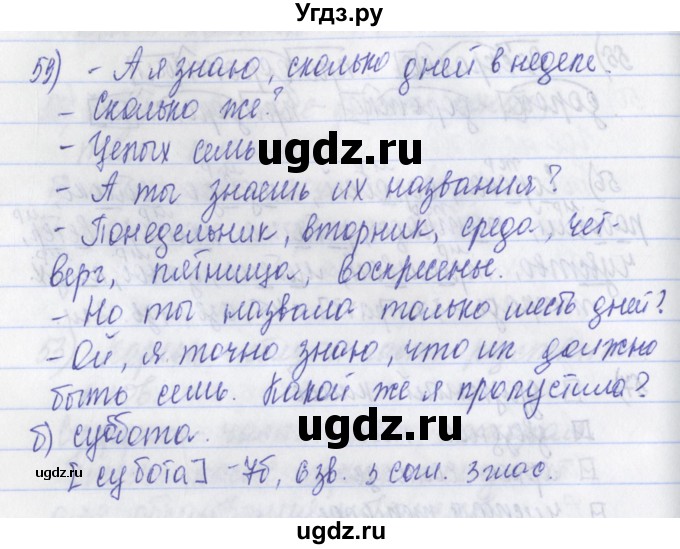 Угдз.ру
59) - А я знаю, сколько дней в неделе.
- Сколько же?
- Целых семь
ugdz.ru
- А ты знаешь их названия?
- Понедельник, вторник, среда, чет-
верг, пятница, воскресенье.
- Но ты назвала только шесть дней?
- Ой, я точно знаю, что их должно
быть семь. Какой же я пропустила?
б) суббота.
[субота] - 7б, 6 зв. 3 согл. 3 глас.
ugdz.ru
ugdz.ru
ugdz.ru